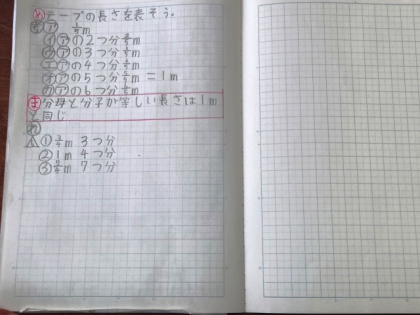 め テープの長さを表そう。
㋐ 1/5m
㋑ ㋐の2つ分 2/5m
㋒ ㋐の3つ分 3/5m
㋓ ㋐の4つ分 4/5m
㋔ ㋐の5つ分 5/5m =1m
㋕ ㋐の6つ分 6/5m
ま 分母と分子が等しい長さは1m
と同じ
① 3/4m 3つ分
② 1m 4つ分
③ 7/4m 7つ分